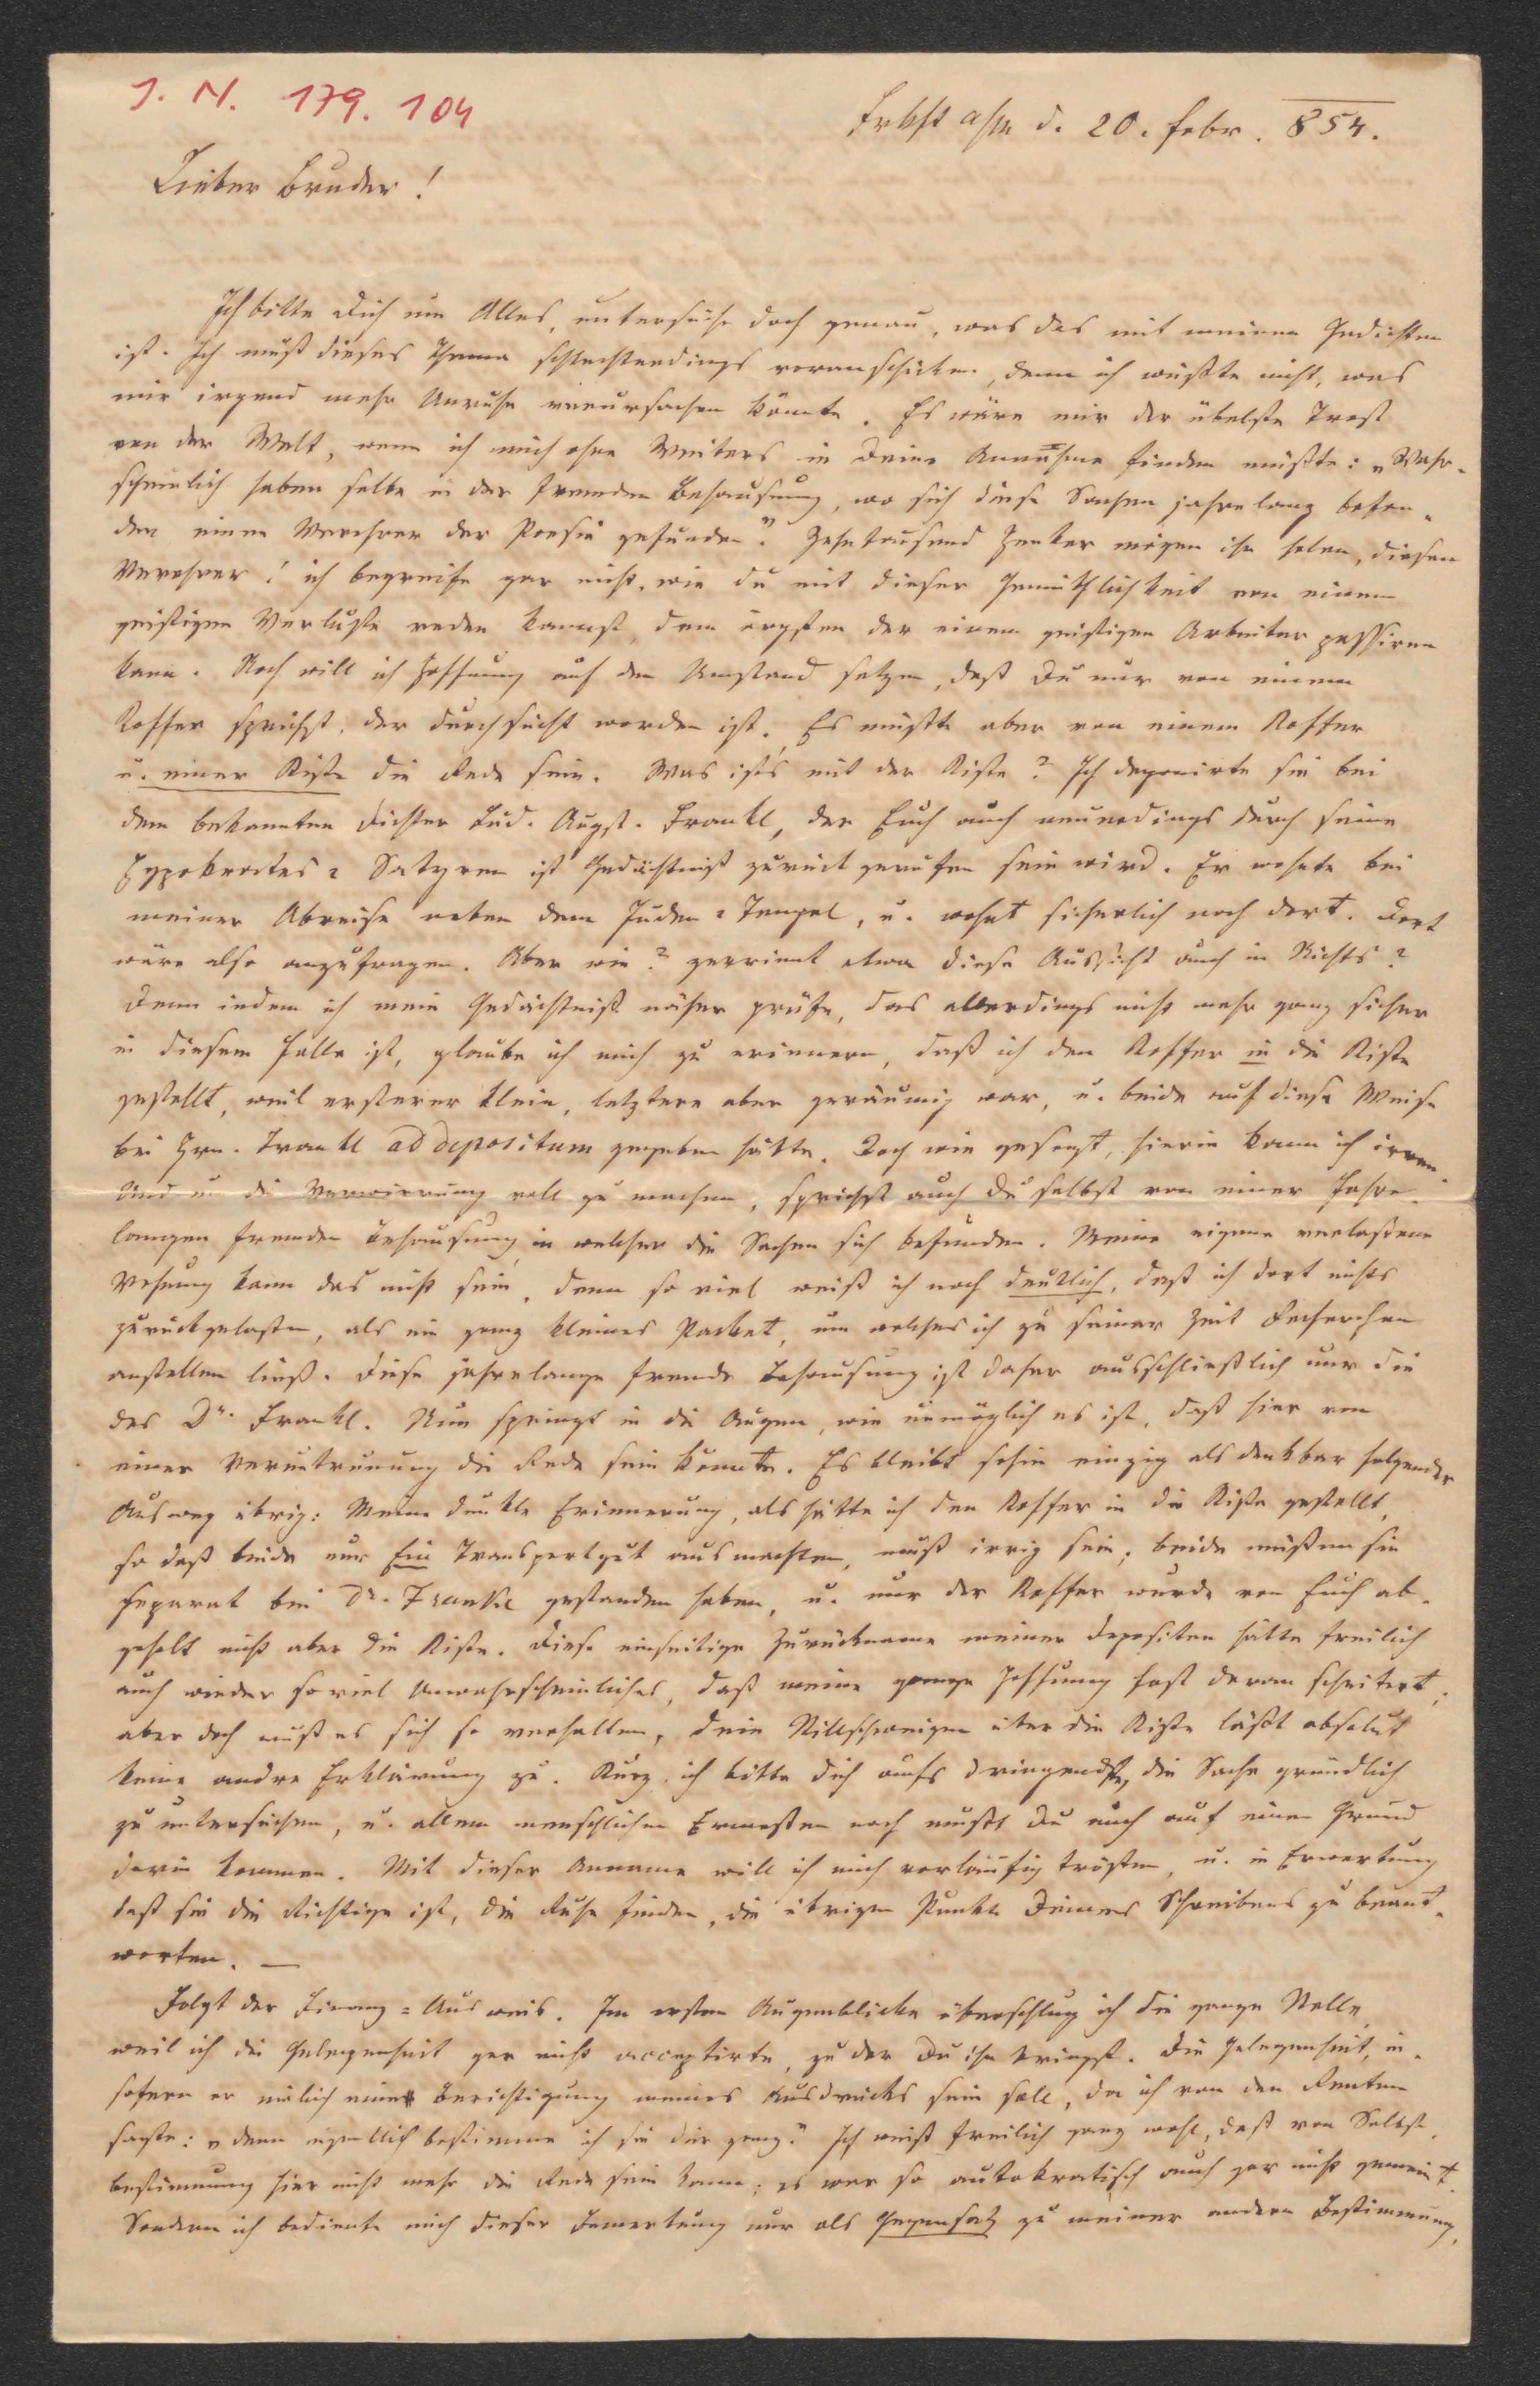 J. N. 179. 104
Frkft a/m d. 20. febr. 854.
Lieber Bruder!
Ich bitte Dich um Alles, untersuche doch genau, was das mit meinen Gedichten
ist. Ich muß dieses Thema schlechterdings voranschicken, denn ich wüßte nicht, was
mir irgend mehr Unruhe verursachen könnte. Es wäre mir der übelste Trost
von der Welt, wenn ich mich ohne Weiters in Deine Annahme finden müßte: „Wahr-
scheinlich haben selbe in der fremden Behausung, wo sich diese Sachen jahrelang befan-
den einen Verehrer der Poesie gefunden." Zehntausend Henker mögen ihn holen, diesen
Verehrer! ich begreife gar nicht, wie Du mit dieser Gemüthlichkeit von einem
geistigen Verluste reden kannst, dem ärgsten der einem geistigen Arbeiter passiren
kann. Noch will ich Hoffnung auf den Umstand setzen, daß Du nur von einem
Koffer sprichst, der durchsucht worden ist. Es müßte aber von einem Koffer
u. einer Kiste die Rede sein. Was ist's mit der Kiste? Ich deponirte sie bei
dem bekannten Dichter Lud. Augst. Frankl, der Euch auch neuerdings durch seine
Hyppokrates = Satyren ist Gedächtniß zurück gerufen sein wird. Er wohnte bei
meiner Abreise neben dem Juden = Tempel, u. wohnt sicherlich noch dort. Dort
wäre also anzufragen. Aber wie? zerrinnt etwa diese Aussicht auch in Nichts?
Denn indem ich mein Gedächtniß näher prüfe, das allerdings nicht mehr ganz sicher
in diesem Falle ist, glaube ich mich zu erinnern, daß ich den Koffer in die Kiste
gestellt, weil ersterer klein, letztere aber geräumig war, u. beide auf diese Weise
bei Hrn. Frankl ad depositum gegeben hätte. Doch wie gesagt, hierin kann ich irren.
Und um die Verwirrung voll zu machen, sprichst auch Du selbst von einer Jahre-
langen fremden Behausung in welcher die Sachen sich befunden. Meine eigene verlassene
Wohnung kann das nicht sein, denn so viel weiß ich noch deutlich, daß ich dort nichts
zurückgelassen, als ein ganz kleines Packet, um welches ich zu seiner Zeit Recherchen
anstellen ließ. Diese jahrelange fremde Behausung ist daher ausschließlich nur die
des Dr. Frankl. Nun springt in die Augen, wie unmöglich es ist, daß hier von
einer Veruntreuung die Rede sein könnte. Es bleibt sohin einzig als denkbar folgender
Ausweg übrig: Meine dunkle Erinnerung, als hätte ich den Koffer in die Kiste gestellt,
so daß beide nur Ein Transportgut ausmachten, muß irrig sein; beide müßen sie
separat bei Dr. Frankl gestanden haben, u. nur der Koffer wurde von Euch ab-
geholt nicht aber die Kiste. Diese einseitige Zurücknahme meiner Depositen hätte freilich
auch wieder so viel Unwahrscheinliches, daß meine ganze Hoffnung fast daran scheitert;
aber doch muß es sich so verhalten, Dein Stillschweigen über die Kiste läßt absolut
keine andre Erklärung zu. Kurz, ich bitte Dich aufs dringendste, die Sache gründlich
zu untersuchen, u. allem menschlichen Ermessen nach mußt Du auch auf einen Grund
darin kommen. Mit dieser Anname will ich mich vorläufig trösten, u. in Erwartung
daß sie die Richtige ist, die Ruhe finden, die übrigen Punkte Deines Schreibens zu beant-
worten. —
Folgt der Finanz = Ausweis. Im ersten Augenblicke überschlug ich die ganze Stelle,
weil ich die Gelegenheit gar nicht acceptirte, zu der Du ihn bringst. Die Gelegenheit, in-
sofern er nämlich eine Berichtigung meines Ausdrucks sein soll, da ich von den Renten
sagte: „denn eigentlich bestimme ich sie Dir ganz." Ich weiß freilich ganz wohl, daß von Selbst-
bestimmung hier nicht mehr die Rede sein kann; es war so autokratisch auch gar nicht gemeint.
Sondern ich bediente mich dieser Bemerkung nur als Gegensatz zu meiner andern Bestimmung,